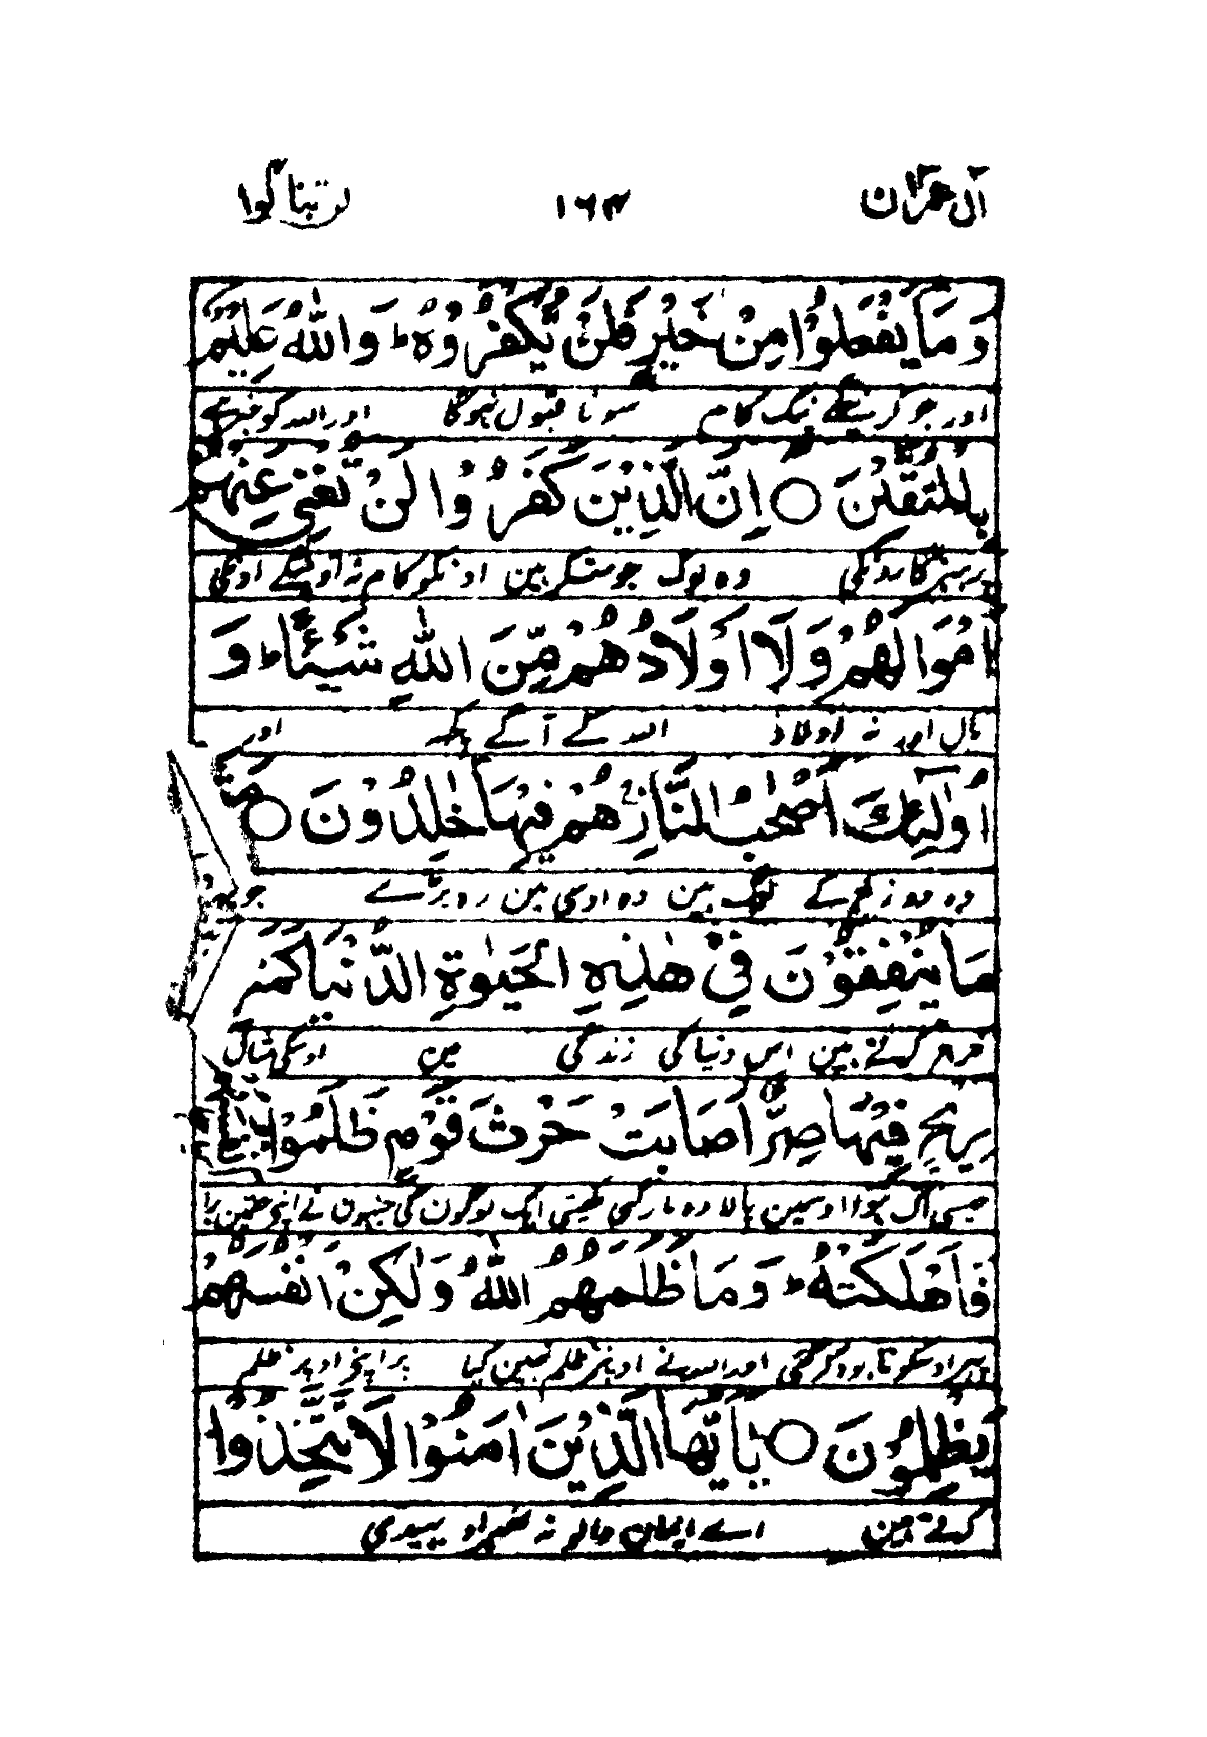 آل عمران ۱۶۴ لن تنالوا
وَمَا يَفْعَلُوْا مِنْ خَيْرٍ فَلَنْ يُّكْفَرُوْهُ ؕ وَاللّٰهُ عَلِيْمٌ
اور جو کرینگے نیک کام سو نا قبول نہوگا اور اللہ کو خبر ہے
بِالْمُتَّقِيْنَ ○ اِنَّ الَّذِيْنَ كَفَرُوْا لَنْ تُغْنِيَ عَنْهُمْ
پرہیزگاروں کی وہ لوگ جو منکر ہین اونکو کام نہ آوینگے اونکے
اَمْوَالُهُمْ وَلَا اَوْلَادُهُمْ مِّنَ اللّٰهِ شَيْئًا ؕ وَ
مال اور نہ اولاد اللہ کے آگے کچھ اور
اُولٰٓئِكَ اَصْحٰبُ النَّارِ هُمْ فِيْهَا خٰلِدُوْنَ ○ مَثَلُ
وہ دوزخ کے لوگ ہین وہ اوسی مین رہ پڑے جو
مَا يُنْفِقُوْنَ فِيْ هٰذِهِ الْحَيٰوةِ الدُّنْيَا كَمَثَلِ
خرچ کرتے ہین اس دنیا کی زندگی مین اوسکی مثال
رِيْحٍ فِيْهَا صِرٌّ اَصَابَتْ حَرْثَ قَوْمٍ ظَلَمُوْا
جیسی ایک ہوا اوسمین پالا وہ مار گئی کھیتی ایک لوگون کی جنہون نے اپنے حق مین برا
فَاَهْلَكَتْهُ ؕ وَمَا ظَلَمَهُمُ اللّٰهُ وَلٰكِنْ اَنْفُسَهُمْ
پھر اوسکو نابود کر گئی اور اللہ نے اونپر ظلم نہین کیا پر اپنے اوپر ظلم
يَظْلِمُوْنَ ○ يٰٓاَيُّهَا الَّذِيْنَ اٰمَنُوْا لَا تَتَّخِذُوْا
کرتے ہین اے ایمان والو نہ ٹھہراو بھیدی